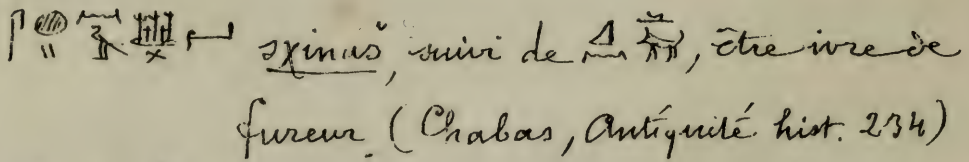 sχinuš, suivi de, être ivre de
fureur. (Chabas, Antiquité hist. 234)